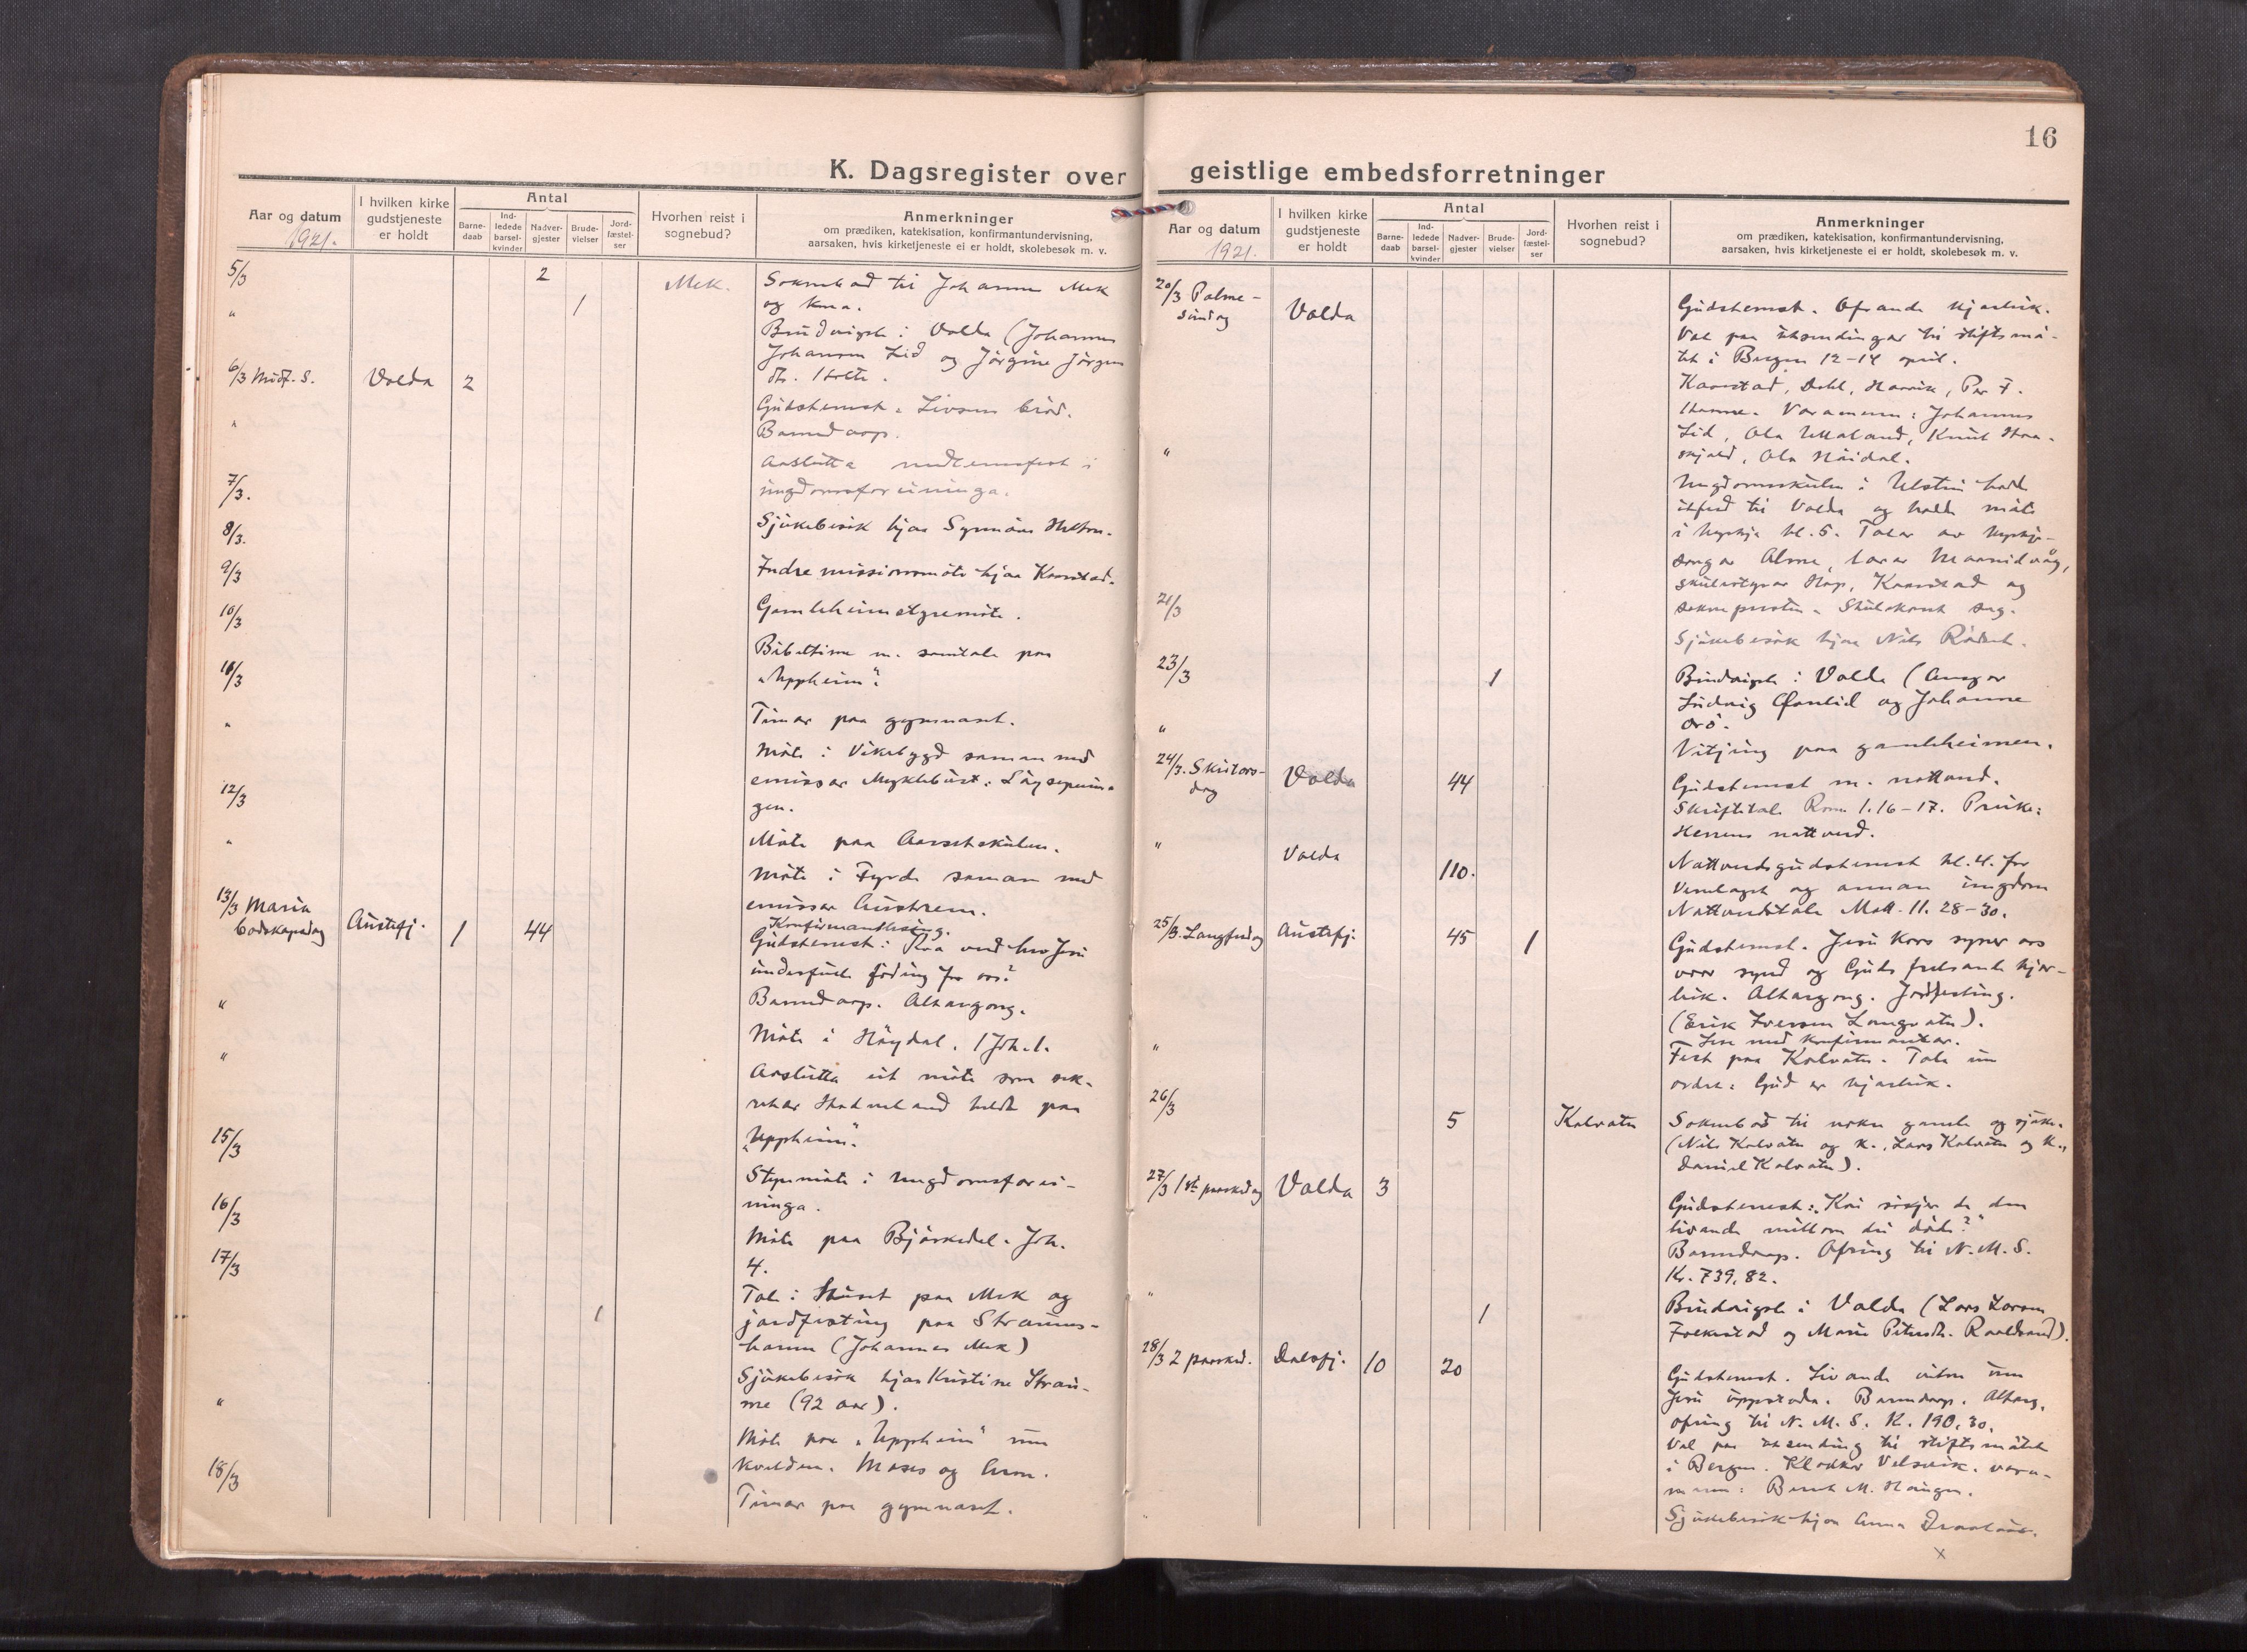 16
K. Dagsregister over
Aar og datum
1921.
I hvilken kirke
gudstjeneste
er holdt
Antal
Barne-
daab
Ind-
ledede
barsel-
kvinder
Nadver-
gjester
Brude-
vielser
Jord-
fæstel-
ser
Hvorhen reist i
sognebud?
Anmerkninger
om prædiken, katekisation, konfirmantundervisning,
aarsaken, hvis kirketjeneste ei er holdt, skolebesøk m. v.
5/3 2 Mek. Soknebod til Johannes Mek
" 1 og kona.
Brudvigsle i Volda (Johannes
Johannson Lid og Jørgine Jørgens
6/3 Midf. S. Volda 2 dtr.
Gudstenest. Livsens brød.
" Barnedaap.
Avslutta medlemsfest i
7/3. ungdomsforeininga.
8/3. Sjukebesøk hjaa Synnøve
9/3 Indremissionsmøte hjaa Kaarstad.
10/3 Gamleheimstyremøte.
Bibeltime m. samtale paa
10/3 "Uppheim".
" Timar paa gymnaset.
Møte i Vikebygd saman med
emissær Myklebust:
12/3 gen.
" Møte paa Aarsetskulen.
Møte i Fyrde saman med
13/3 Maria emissær Austrem.
bodskapsdag Austefj. 1 44 Konfirmantlesing.
Gudstenest: Kva ved hev Jesu
underfulle føding for oss?
" Barnedaap. Altargong.
Møte i Høydal. 1 Joh. 1.
" Avslutta eit møte som sek-
retær heldt paa
15/3 "Uppheim".
Styremøte i Ungdomsforei-
16/3 ninga.
Møte paa Bjørkedal. Joh.
17/3 4.
Tale i Huset paa Mek og
1 jordfesting paa Straums-
hamn (Johannes Mek)
Sjukebesøk hjaa Kristine Strau-
" me (92 aar).
Møte paa "Uppheim" um
18/3 kvelden. Moses og Aron.
Timar paa gymnaset.
geistlige embedsforretninger
Aar og datum
1921.
I hvilken kirke
gudstjeneste
er holdt
Antal
Barne-
daab
Ind-
ledede
barsel-
kvinder
Nadver-
gjester
Brude-
vielser
Jord-
fæstel-
ser
Hvorhen reist i
sognebud?
Anmerkninger
om prædiken, katekisation, konfirmantundervisning,
aarsaken, hvis kirketjeneste ei er holdt, skolebesøk m. v.
20/3 Palme-
sundag Volda Gudstenest. Ofrande kjærleik.
Val paa utsendingar til stiftsmø-
tet i Bergen 12-14 april.
Kaarstad, Dahl, Harvik, Per F.
Varamenn: Johannes
Lid, Ola Ulvaland, Knut
" Ola Høidal.
Ungdomsskulen i Ulstein hadde
utferd til Volda og heldt møte
i kyrkja kl. 5. Talar av kyrkje-
songar Alme, lærar
skulestyrar Hop, Kaarstad og
21/3 soknepresten. Skulekoret song.
Sjukebesøk hjaa Nils
23/3 1 Brudvigsle i Volda (Ansgar
Ludvig og Johanne
"
Vitjing paa gamleheimen.
24/3. Skiitors-
dag Volda 44 Gudstenest m. nattverd.
Skriftetale Rom 1.16-17. Preike:
Herrens nattverd.
" Volda 110. Nattverdsgudstenest kl. 4. for
Venelaget og annan ungdom
Nattverdstale Matt. 11. 28-30.
25/3. Langfredag Austefj. 45 1 Gudstenest. Jesu kors syner oss
vaar synd og Guds frelsande kjær-
leik. Altargong. Jordfesting.
(Erik Iverson Langvatn).
" Lese med konfirmantar.
Fest paa Kalvatn. Tale um
ordet: Gud er kjærleik.
26/3 5 Kalvatn Soknebod til nokre gamle og sjuke.
(Nils Kalvatn og K., Lars Kalvatn og K.,
Daniel Kalvatn).
27/3 1ste paaskedag Volda 3 Gudstenest: "Kvi søkjer de den
livande millom dei døde?"
Barnedaap. Ofring til N. M. S.
Kr. 739,82.
" 1 Brudvigsle i Volda (Lars Larson
Folkestad og Marie Petersdtr.
28/3 2 paaskd. Dalsfj. 10 20 Gudstenest. Livande vitne um
Jesu uppstoda. Barnedaap. Altarg.
ofring til N. M. S. Kr. 190,30.
Val paa utsending til stiftsmøtet
i Bergen. Klokkar Velsvik. vara-
mann: Bernt M.
" Sjukebesøk hjaa Anna
x